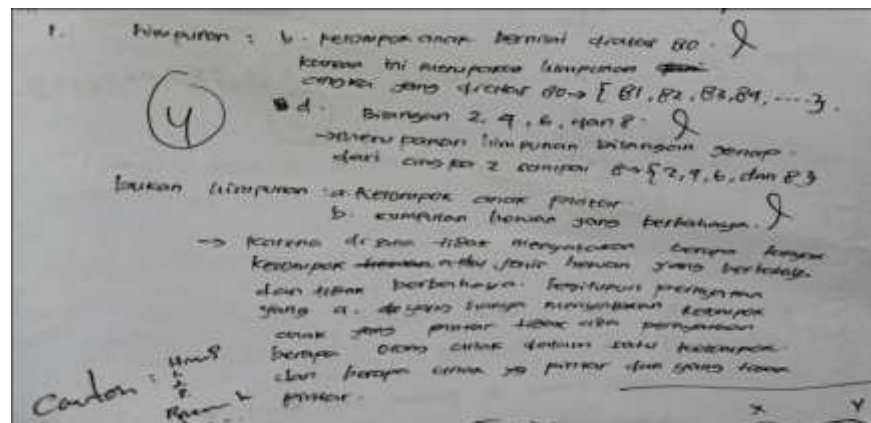 1. himpunan : b. kelompok anak bernilai diatas 80.
karena ini merupakan himpunan
angka yang diatas 80 → { 81, 82, 83, 84, ....}.
4
d. Bilangan 2, 4, 6, dan 8.
→ merupakan himpunan bilangan genap
dari angka 2 sampai 8 → {2, 4, 6, dan 8}
bukan himpunan : a. kelompok anak pintar
b. kumpulan hewan yang berbahaya.
→ karena di sana tidak menyatakan berapa
kelompok atau jenis hewan yang
dan tidak berbahaya. pernyataan
yang a. hanya menyatakan kelompok
anak yang pintar tidak ada pernyataan
berapa orang anak dalam satu kelompok
dan berapa anak yg pintar dan yang tidak
pintar.
x y